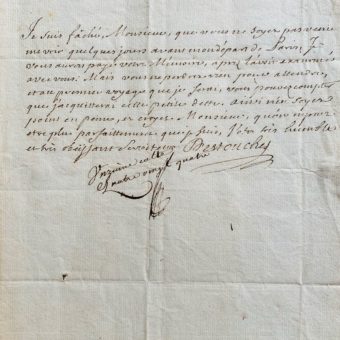 Je suis fâché, Monsieur, que vous ne soyez pas venu
me voir quelques jours avant mon départ de Paris. Je
vous aurois payé votre Mémoire, après l'avoir examiné
avec vous. Mais vous ne perdrez rien pour attendre,
et au premier voyage que je ferai, vous pouvez compter
que j'acquitterai cette petite dette. ainsi n'en soyez
point en peine, et croyez, Monsieur, qu'on ne peut
être plus parfaitement que je suis, Votre très humble
et très obéissant Serviteur Destouches
quatre vingt quatre